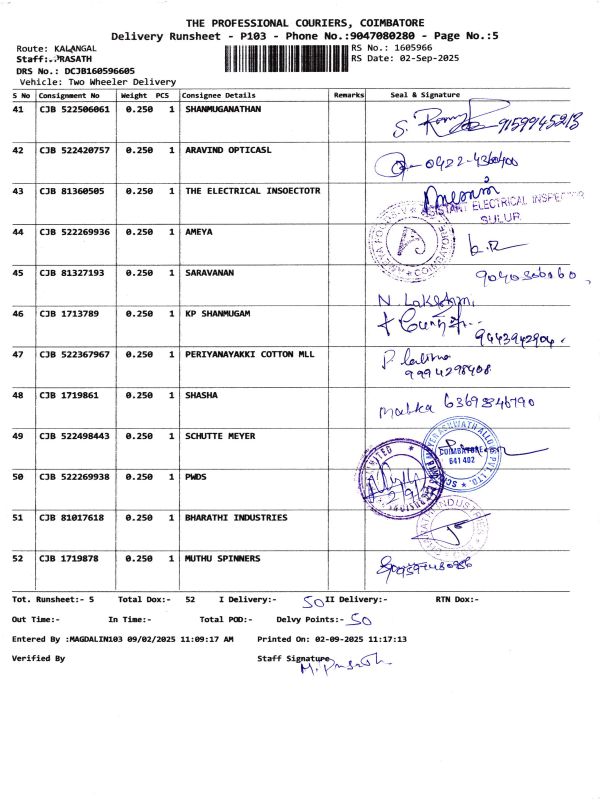 THE PROFESSIONAL COURIERS, COIMBATORE
Delivery Runsheet - P103 - Phone No.:9047080280 - Page No.:5
Route: KALANGAL RS No.: 1605966
Staff:.PRASATH RS Date: 02-Sep-2025
DRS No.: DCJB160596605
Vehicle: Two Wheeler Delivery
S No Consignment No Weight PCS Consignee Details Remarks Seal & Signature
41 CJB 522506061 0.250 1 SHANMUGANATHAN 9159945213
42 CJB 522420757 0.250 1 ARAVIND OPTICASL 0422-4360400
43 CJB 81360505 0.250 1 THE ELECTRICAL INSOECTOTR
ASSISTANT ELECTRICAL INSPECTOR
SULUR
44 CJB 522269936 0.250 1 AMEYA
45 CJB 81327193 0.250 1 SARAVANAN
46 CJB 1713789 0.250 1 KP SHANMUGAM 9443942904
47 CJB 522367967 0.250 1 PERIYANAYAKKI COTTON MLL
P. Lalitha
9994298408
48 CJB 1719861 0.250 1 SHASHA 6369846790
49 CJB 522498443 0.250 1 SCHUTTE MEYER
COIMBATORE
641 402
50 CJB 522269938 0.250 1 PWDS
51 CJB 81017618 0.250 1 BHARATHI INDUSTRIES
52 CJB 1719878 0.250 1 MUTHU SPINNERS
Tot. Runsheet:- 5 Total Dox:- 52 I Delivery:- 50 II Delivery:- RTN Dox:-
Out Time:- In Time:- Total POD:- Delvy Points:- 50
Entered By :MAGDALIN103 09/02/2025 11:09:17 AM Printed On: 02-09-2025 11:17:13
Verified By Staff Signature
M. Prasath.